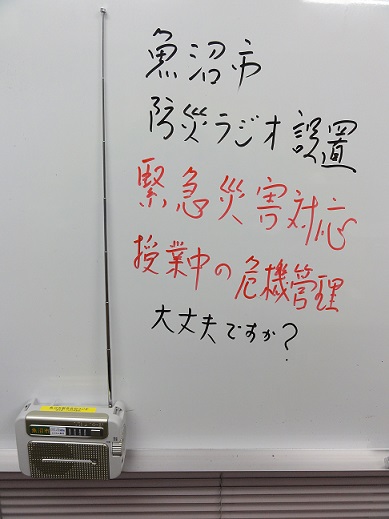 魚沼市
防災ラジオ設置
緊急災害対応
授業中の危機管理
大丈夫ですか?